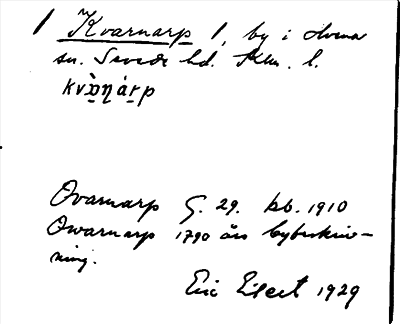 Kvarnarp 1, by i
sn. Sevede hd. Klm. l.
Qvarnarp G. 29. kb. 1910
Qwarnarp 1790 års bybeskriv-
ning.
Eric Elgert 1929